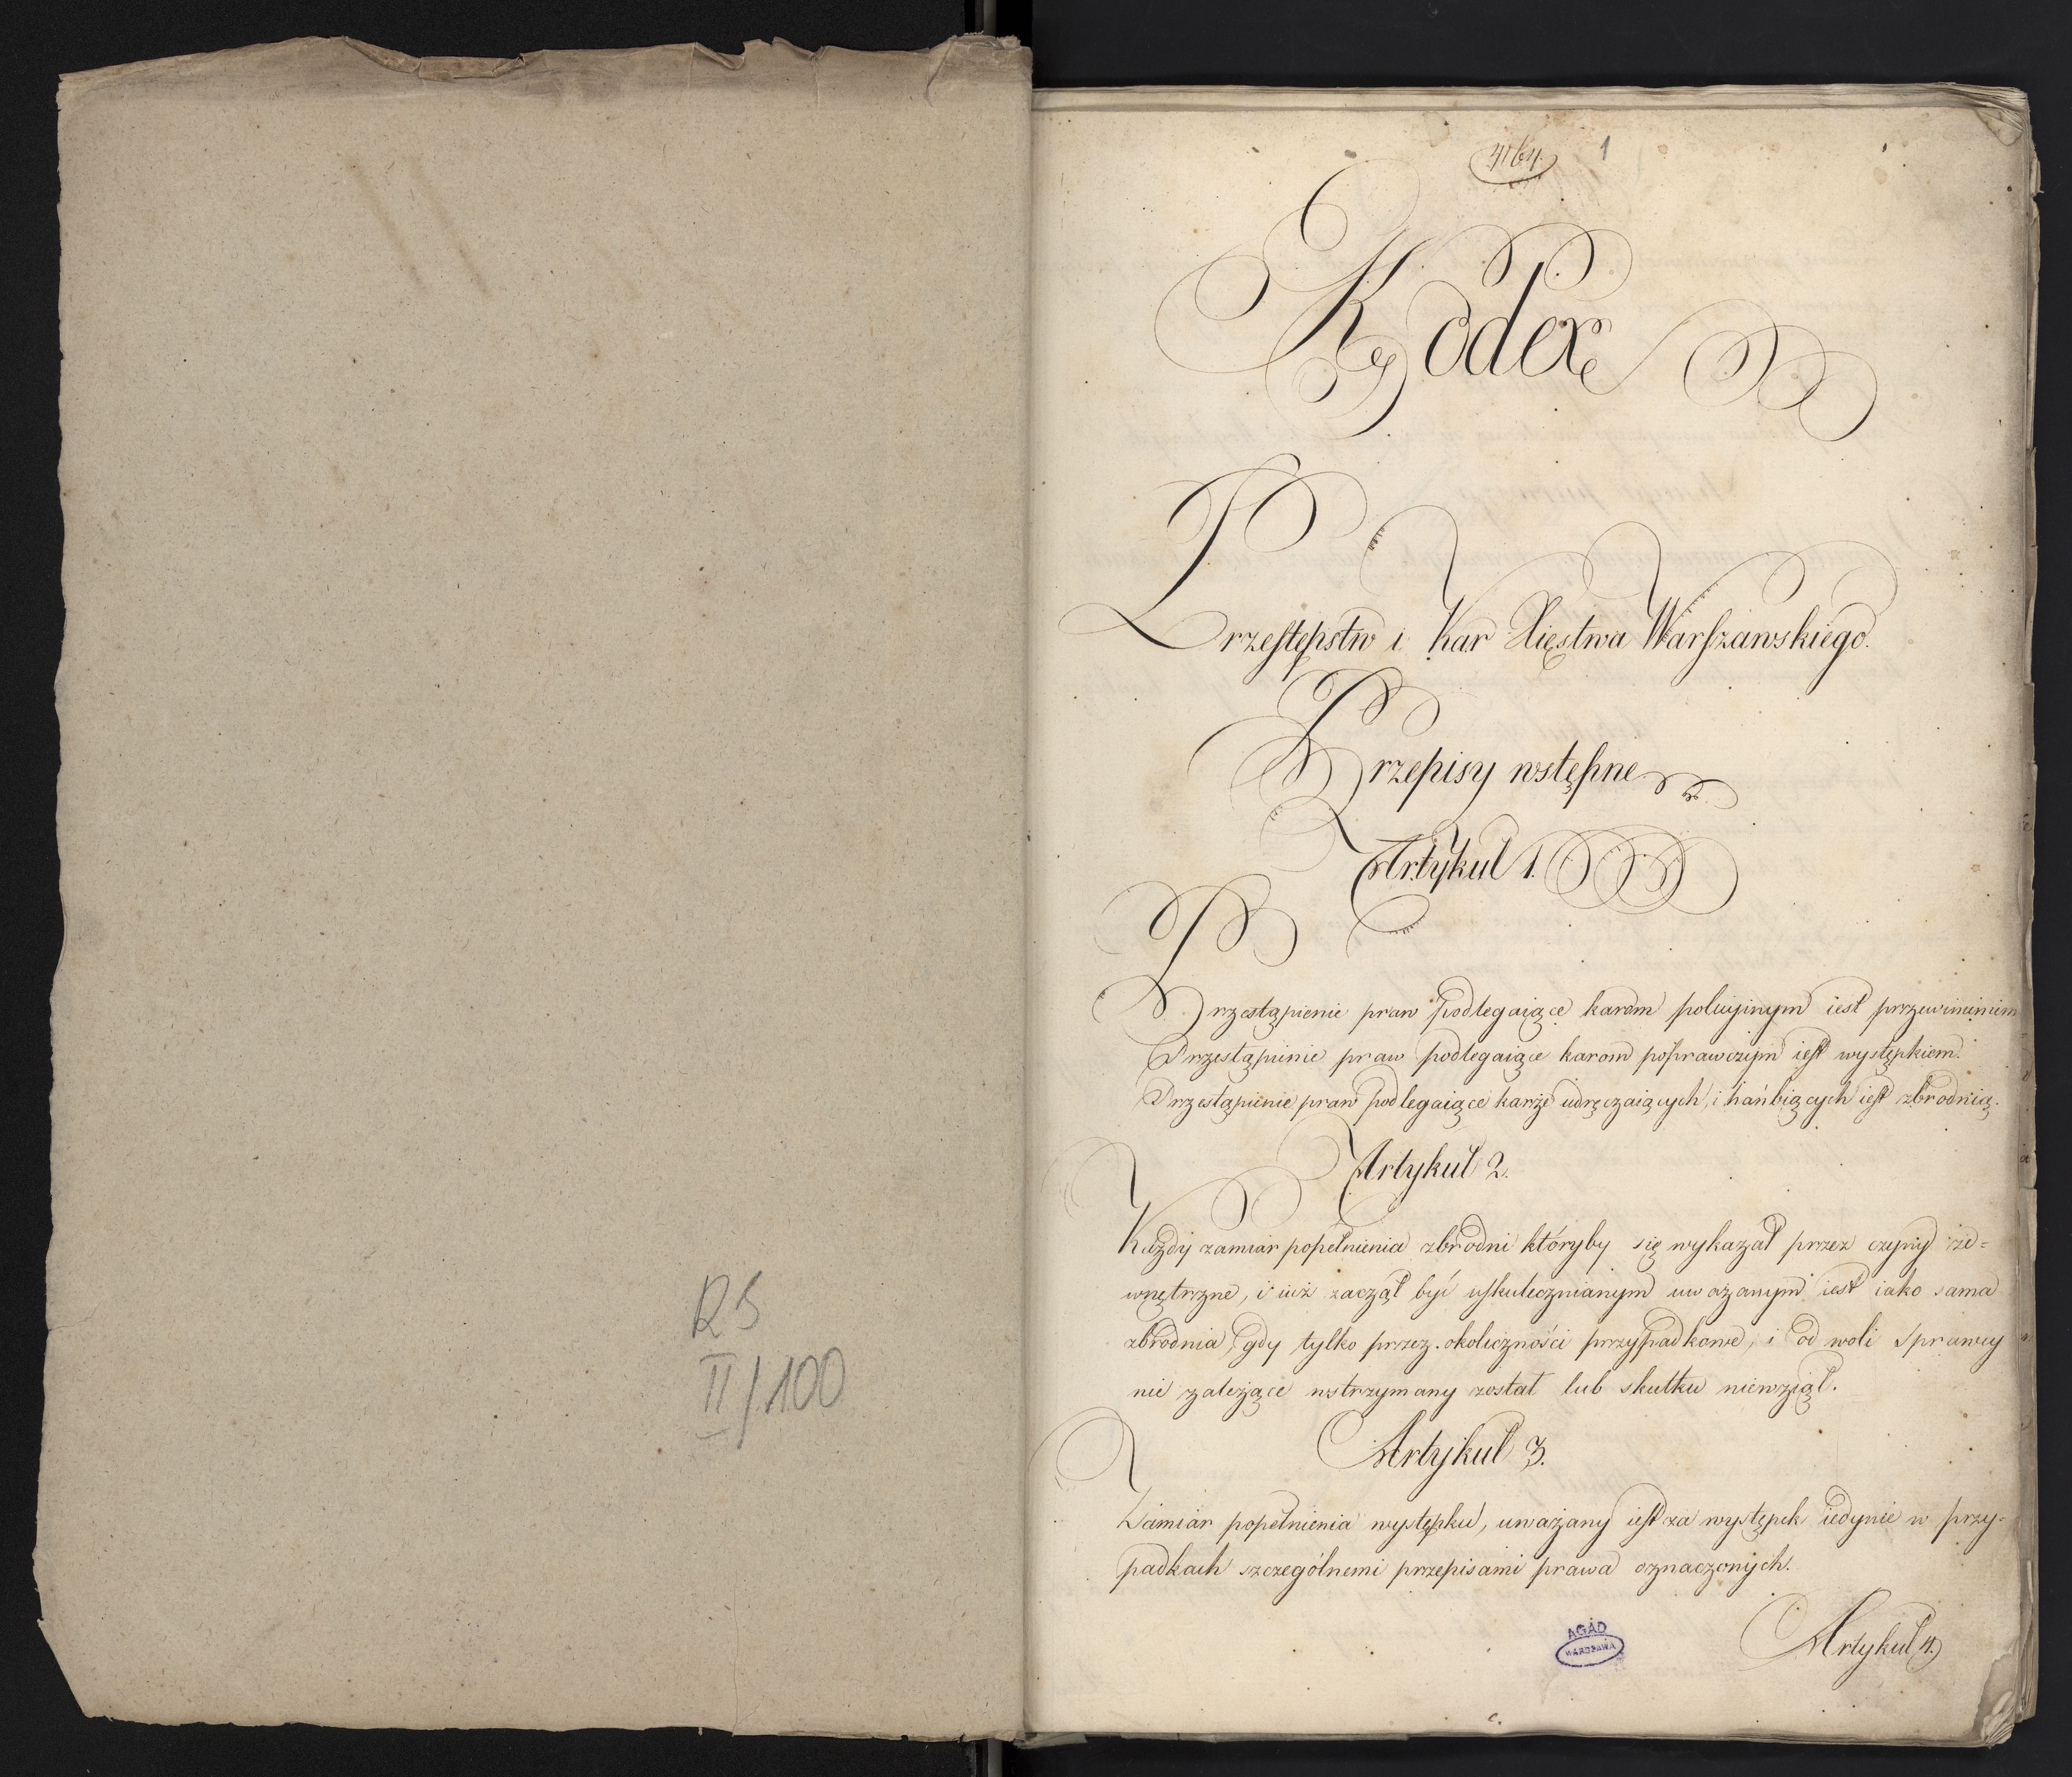 RS
II/100
1
Kodex
Przestępstw i Kar Xięstwa Warszawskiego.
Przepisy wstępne
Artykuł 1.
Przestąpienie praw podlegaiące karom policyinym iest przewinieniem
Przestąpienie praw podlegaiące karom poprawczym iest występkiem.
Przestąpienie praw podlegaiące karze udręczaiących, i hańbiących iest zbrodnią.
Artykuł 2.
Każdy zamiar popełnienia zbrodni któryby się wykazał przez czyny ze=
wnętrzne, i iuż zaczął być uskutecznianym uważanym iest iako sama
zbrodnia, gdy tylko przez okoliczności przypadkowe, i od woli Sprawcy
nie zależące wstrzymany został lub skutku niewziął.
Artykuł 3.
Zamiar popełnienia występku, uważany iest za występek iedynie w przy=
padkach szczególnemi przepisami prawa oznaczonych.
AGAD
WARSZAWA
Artykuł 4.